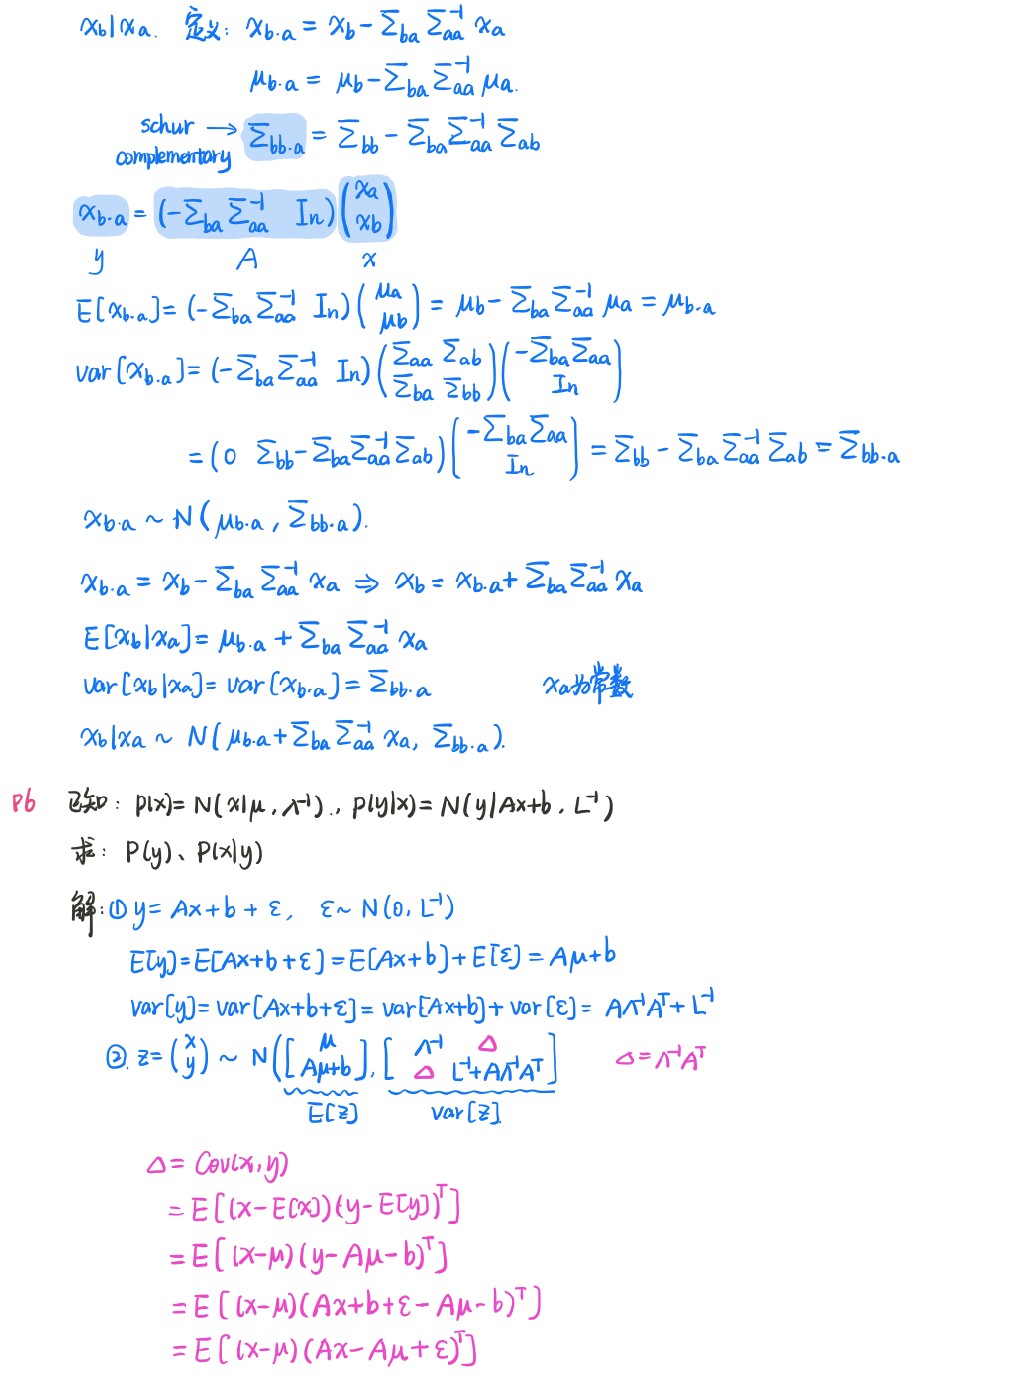 x_b|x_a. 定义: x_{b·a} = x_b - Σ_{ba} Σ_{aa}^{-1} x_a
μ_{b·a} = μ_b - Σ_{ba} Σ_{aa}^{-1} μ_a.
schur complementary → Σ_{bb·a} = Σ_{bb} - Σ_{ba} Σ_{aa}^{-1} Σ_{ab}
x_{b·a} = (-Σ_{ba} Σ_{aa}^{-1} I_n) (x_a x_b)
y A x
E[x_{b·a}] = (-Σ_{ba} Σ_{aa}^{-1} I_n) (μ_a μ_b) = μ_b - Σ_{ba} Σ_{aa}^{-1} μ_a = μ_{b·a}
var[x_{b·a}] = (-Σ_{ba} Σ_{aa}^{-1} I_n) (Σ_{aa} Σ_{ab} Σ_{ba} Σ_{bb}) (-Σ_{ba} Σ_{aa} I_n)
= (0 Σ_{bb} - Σ_{ba} Σ_{aa}^{-1} Σ_{ab}) (-Σ_{ba} Σ_{aa} I_n) = Σ_{bb} - Σ_{ba} Σ_{aa}^{-1} Σ_{ab} = Σ_{bb·a}
x_{b·a} ~ N(μ_{b·a}, Σ_{bb·a}).
x_{b·a} = x_b - Σ_{ba} Σ_{aa}^{-1} x_a ⇒ x_b = x_{b·a} + Σ_{ba} Σ_{aa}^{-1} x_a
E[x_b|x_a] = μ_{b·a} + Σ_{ba} Σ_{aa}^{-1} x_a
var[x_b|x_a] = var[x_{b·a}] = Σ_{bb·a} x_a为常数
x_b|x_a ~ N(μ_{b·a} + Σ_{ba} Σ_{aa}^{-1} x_a, Σ_{bb·a}).
P6 已知: p(x) = N(x|μ, Λ^{-1})., p(y|x) = N(y|Ax+b, L^{-1})
求: P(y)、P(x|y)
解: ① y = Ax + b + ε, ε ~ N(0, L^{-1})
E[y] = E[Ax+b+ε] = E[Ax+b] + E[ε] = Aμ+b
var[y] = var[Ax+b+ε] = var[Ax+b] + var[ε] = AΛ^{-1}A^T + L^{-1}
②. z = (x y) ~ N([μ Aμ+b], [Λ^{-1} Δ Δ L^{-1}+AΛ^{-1}A^T] Δ = Λ^{-1}A^T
E[z] var[z]
Δ = Cov(x, y)
= E[(x - E[x])(y - E[y])^T]
= E[(x-μ)(y - Aμ - b)^T]
= E[(x-μ)(Ax+b+ε - Aμ - b)^T]
= E[(x-μ)(Ax - Aμ + ε)^T]